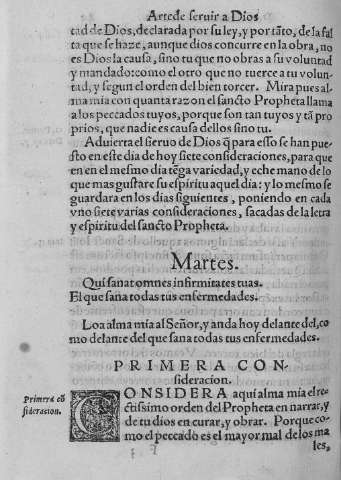 Arte de seruir a Dios
tad de Dios, declarada por su ley, y por tãto, de la fal
ta que se haze, aunque dios concurre en la obra, no
es Dios la causa, sino tu que no obras a su voluntad
y mandado: como el otro que no tuerce a tu volun-
tad, y segun el orden del bien torcer. Mira pues al-
ma mia con quanta razon el sancto Propheta llama
a los peccados tuyos, porque son tan tuyos y tã pro
prios, que nadie es causa dellos sino tu.
Aduierta el sieruo de Dios q̃ para esso se han pue-
sto en este dia de hoy siete consideraciones, para que
en en el mesmo dia tẽga variedad, y eche mano de lo
que mas gustare su espiritu aquel dia: y lo mesmo se
guardara en los dias siguientes, poniendo en cada
vno siete varias consideraciones, sacadas de la letra
y espiritu del sancto Propheta.
Martes.
Qui sanat omnes infirmitates tuas.
El que sana todas tus enfermedades.
Loa alma mia al Señor, y anda hoy delante del, co
mo delante del que sana todas tus enfermedades.
PRIMERA CON-
sideracion.
Primera cõ
sideracion.
CONSIDERA aqui alma mia el re-
ctissimo orden del Propheta en narrar, y
de tu dios en curar, y obrar. Porque co-
mo el peccado es el mayor mal de los ma
les,